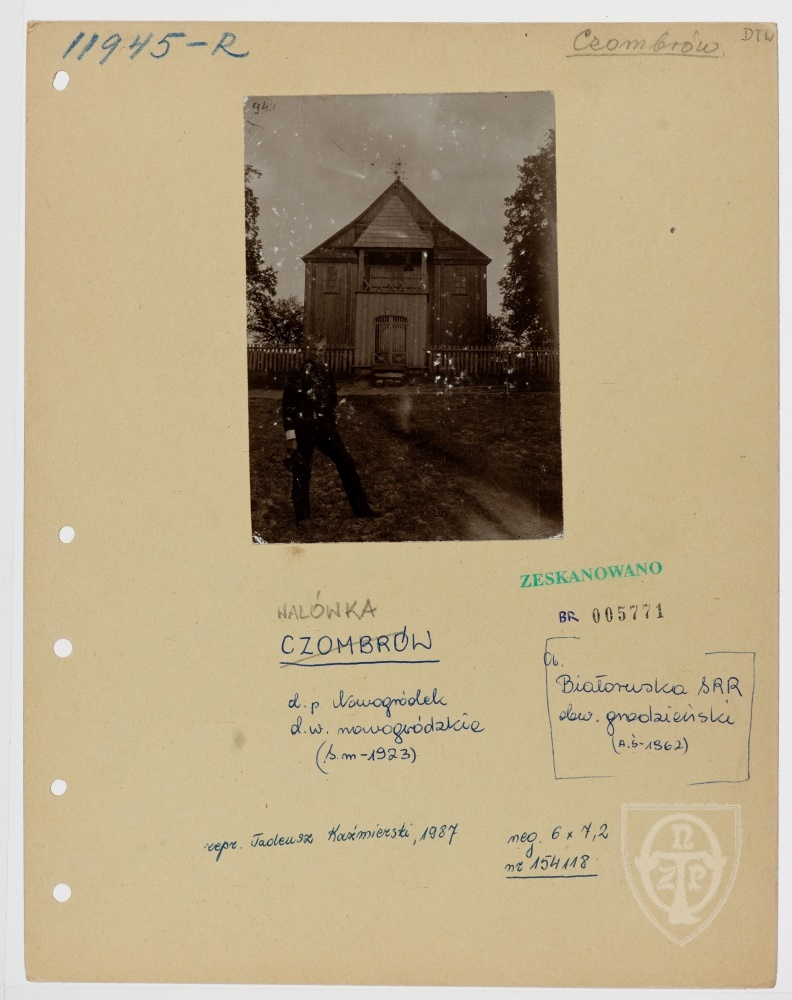 11945-R
Czombrów.
DTW
ZESKANOWANO
BR 005771
WALÓWKA
CZOMBRÓW
d. p. Nowogródek
d. w. nowogródzkie
(S.m-1923)
Ob.
Białoruska SRR
obw. grodzieński
(A.Ś-1962)
repr. Tadeusz Kaźmierski, 1987
neg. 6 x 7,2
nr 154118